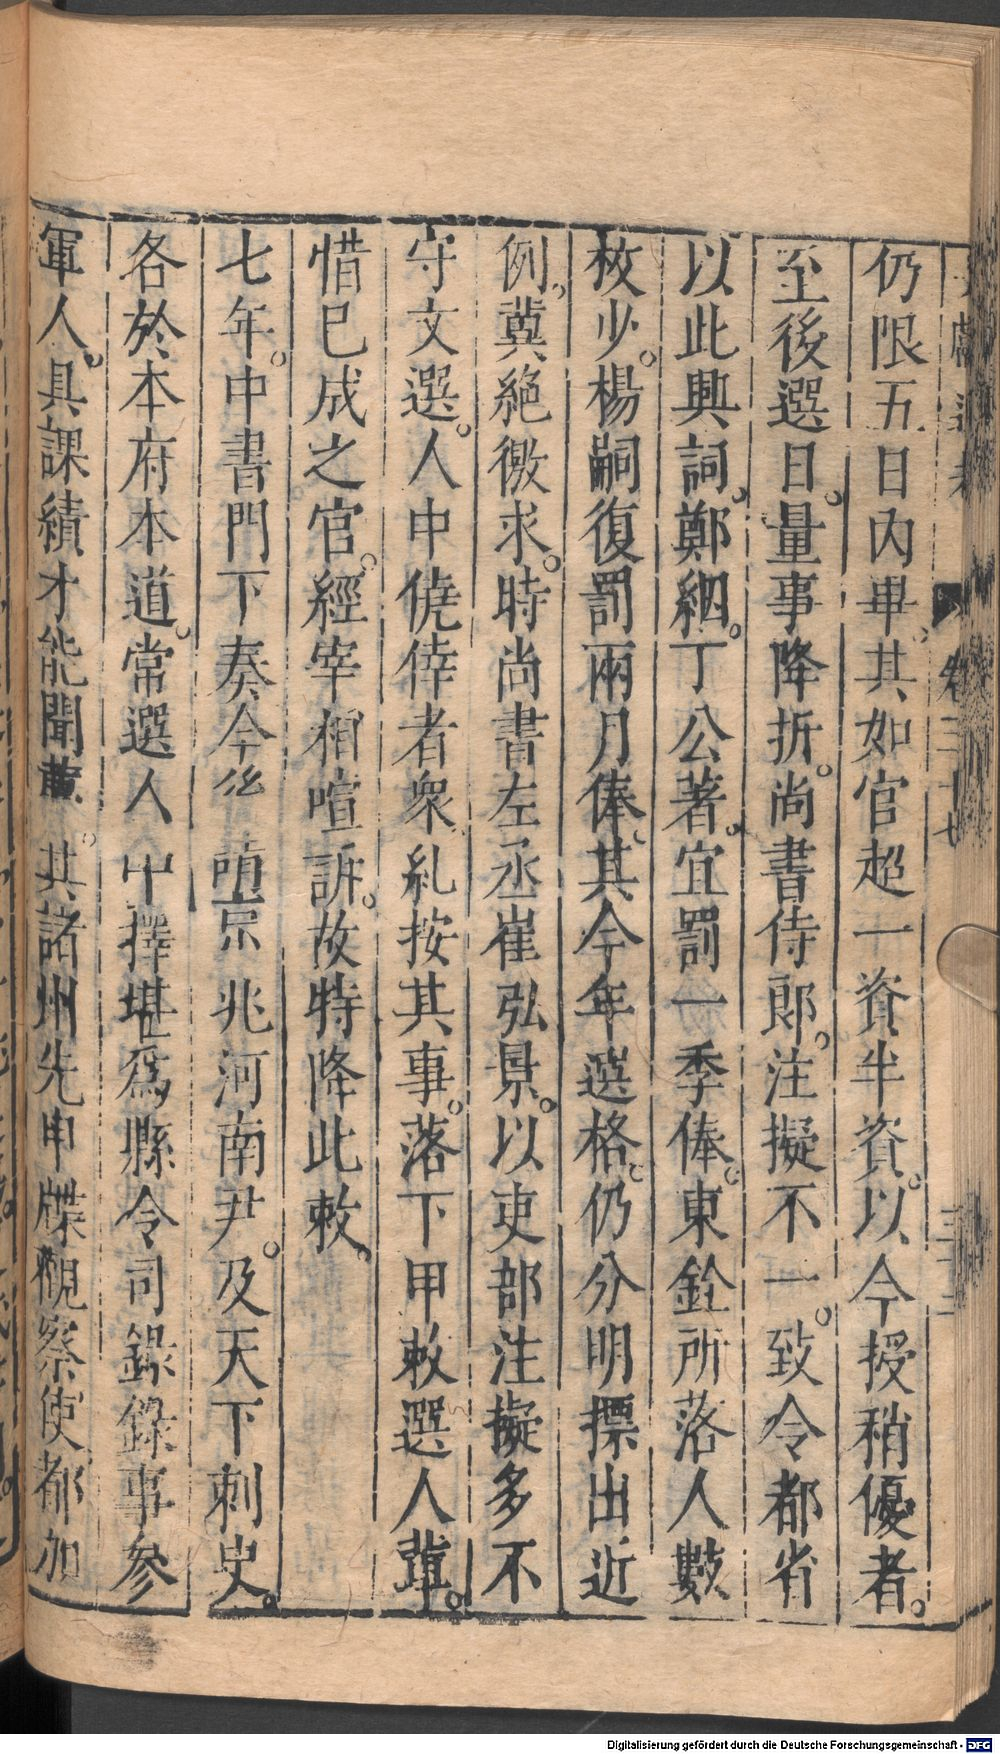 仍限五日內畢其如官超一資半資以今授稍優者。
至後選日。量事降折。尚書侍郎。注擬不一。致令都省
以此興詞。鄭絪。丁公著。宜罰一季俸。東銓所落人數
校少。楊嗣復罰兩月俸。其今年選格。仍分明摽出近
例。冀絕徼求。時尚書左丞崔弘景。以吏部注擬多不
守文選。人中僥倖者衆。糺按其事。落下甲敕選人輩。
惜已成之官。經宰相喧訴。故特降此敕。
七年。中書門下奏今後 京兆河南尹。及天下刺史。
各於本府本道。常選人中擇堪爲縣令司錄錄事參
軍人。具課績才能聞薦。其諸州先申牒觀察使都加
卷三十七
三十二
Digitalisierung gefördert durch die Deutsche Forschungsgemeinschaft - DFG